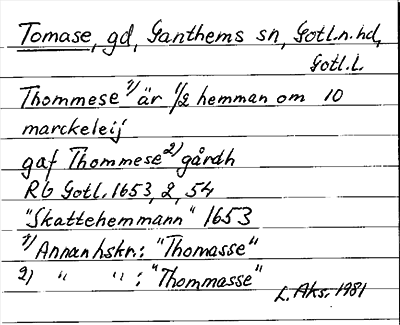 Tomase, gd, Ganthems sn, Gotl.n.hd,
Gotl.l.
Thommese 1) är 1/2 hemman om 10
marckeleij
gaf Thommese 2) gårdh
Rb Gotl. 1653, 2, 54
"Skattehemmann" 1653
1) Annan hskr.: "Thomasse"
2) " " : "Thommasse"
L. Aks. 1981